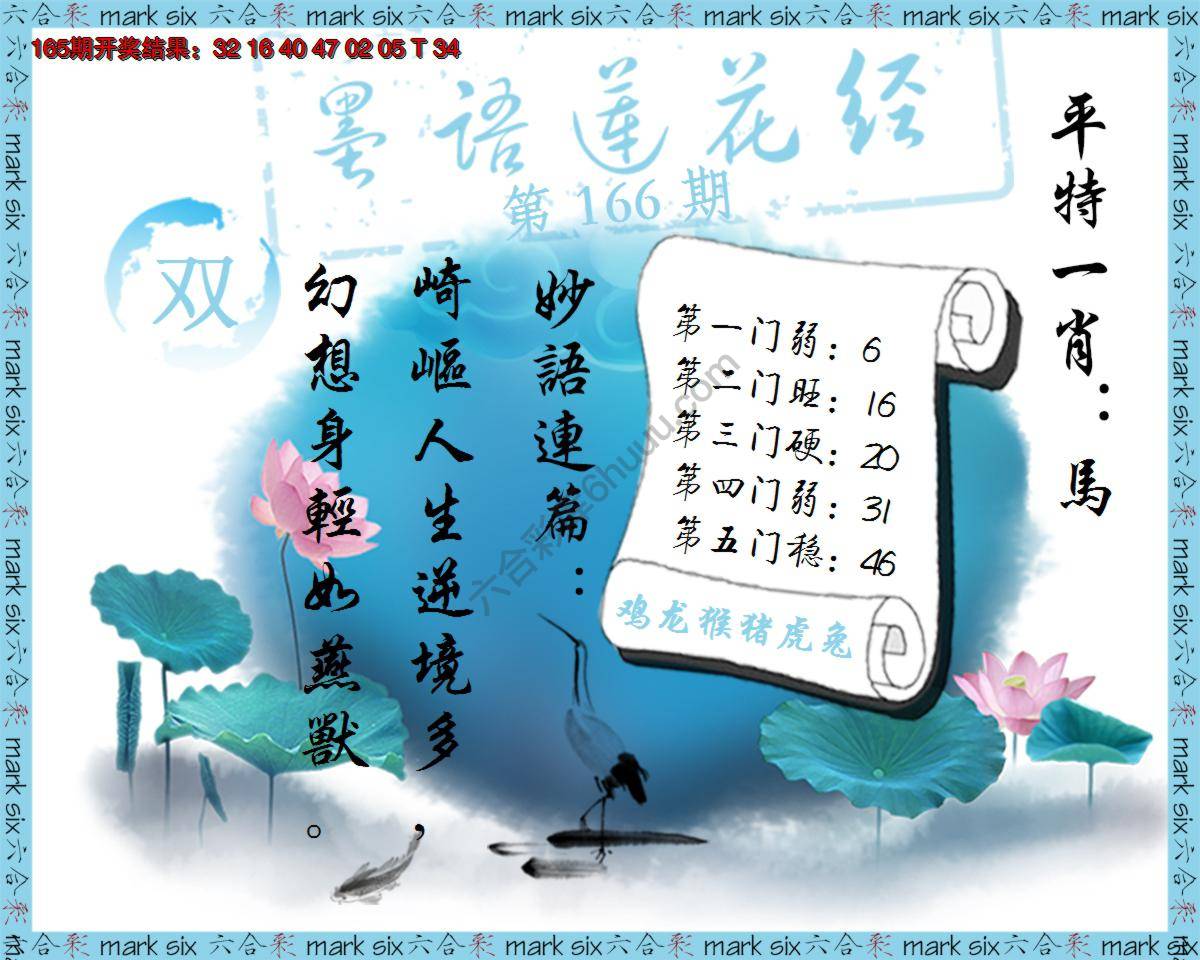 六合彩 mark six 六合彩 mark six 六合彩 mark six 六合彩 mark six 六合彩 mark six 六合彩 mark six
165期开奖结果：32 16 40 47 02 05 T 34
墨语莲花经
第 166 期
双
平特一肖：馬
妙語連篇：
崎嶇人生逆境多，
幻想身輕如燕獸。
第一门弱：6
第二门旺：16
第三门硬：20
第四门弱：31
第五门稳：46
鸡龙猴猪虎兔
六合彩 mark six 六合彩 mark six 六合彩 mark six 六合彩 mark six 六合彩 mark six 六合彩 mark six